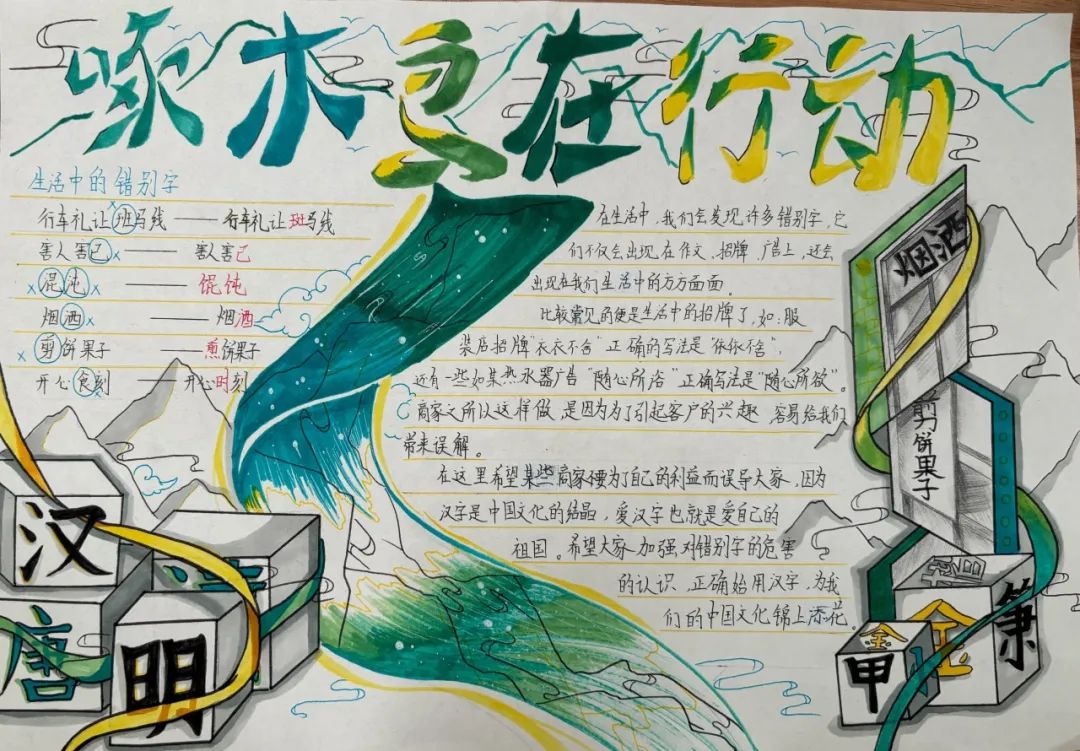 啄木鸟在行动
生活中的错别字
行车礼让班马线 —— 行车礼让斑马线
害人害已 —— 害人害己
混沌 —— 馄饨
烟洒 —— 烟酒
剪饼果子 —— 煎饼果子
开心食刻 —— 开心时刻
在生活中,我们会发现许多错别字,它
们不仅会出现在作文、招牌、广告上,还会
出现在我们生活中的方方面面。
比较常见的便是生活中的招牌了,如:服
装店招牌“衣衣不舍”正确的写法是“依依不舍”,
还有一些如某热水器广告“随心所浴”正确写法是“随心所欲”。
商家之所以这样做,是因为为了引起客户的兴趣 容易给我们
带来误解。
在这里希望某些商家不要为了自己的利益而误导大家,因为
汉字是中国文化的结晶,爱汉字也就是爱自己的
祖国。希望大家加强对错别字的危害
的认识,正确始用汉字,为我
们的中国文化锦上添花。
烟洒
剪饼果子
汉
唐
明
金
甲
金